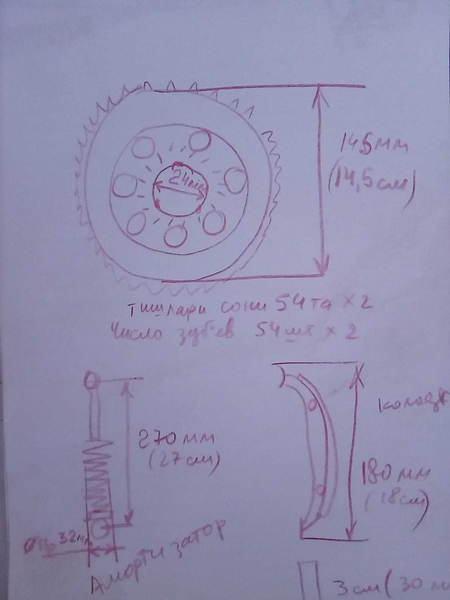 24мм
145мм
(14,5см)
тишлари сони 54та × 2
Число зубьев 54шт × 2
270мм
(27см)
32мм
Амортизатор
колодк
180мм
(18см)
3см (30 м